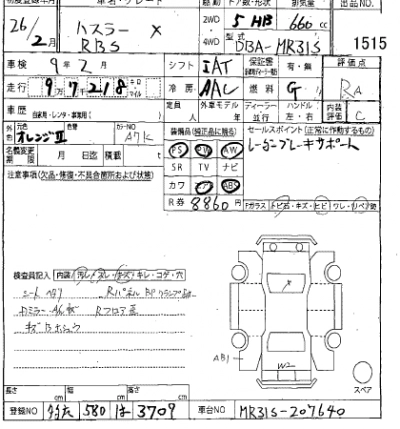 初度登録年月 車名・グレード 駆動 ドア数・形状 排気量 出品NO.
26/2月 ハスラー X 2WD 5 HB 660 cc
RBS 4WD 型式 DBA-MR31S 1515
車検 9年2月 シフト IAT 保証書 有・無 評価点
走行 9万7千218 キロ マイル 冷房 AAC 燃料 G RA
車歴 自家用・レンタ・事業用( ) 定員 人 外車モデル 年 ディーラー 並行 ハンドル 左・右 内装評価 C
外色 元色 オレンジII カラーNO A7K 装備品(純正品に限る) セールスポイント(正常に作動するもの)
名義変更期限 月 日迄 積載 t PS PW AW レーダーブレーキサポート
SR TV ナビ
注意事項(欠品・修復・不具合箇所および状態) カワ エア ABS
R券 8860円 Fガラス トビ石・キズ・ヒビ ワレ・リペア跡
検査員記入 内装 汚レ・スレ・キズ・キレ・コゲ・穴
シートヘタリ
Rフロア
AB1
W2
スペア
長さ cm 幅 cm 高さ cm
登録NO 580 は 3709 車台NO MR31S-207640